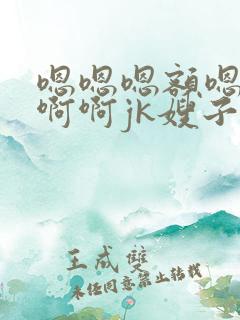 嗯嗯嗯额嗯
啊啊jk嫂子
王成双
未经同意禁止转载